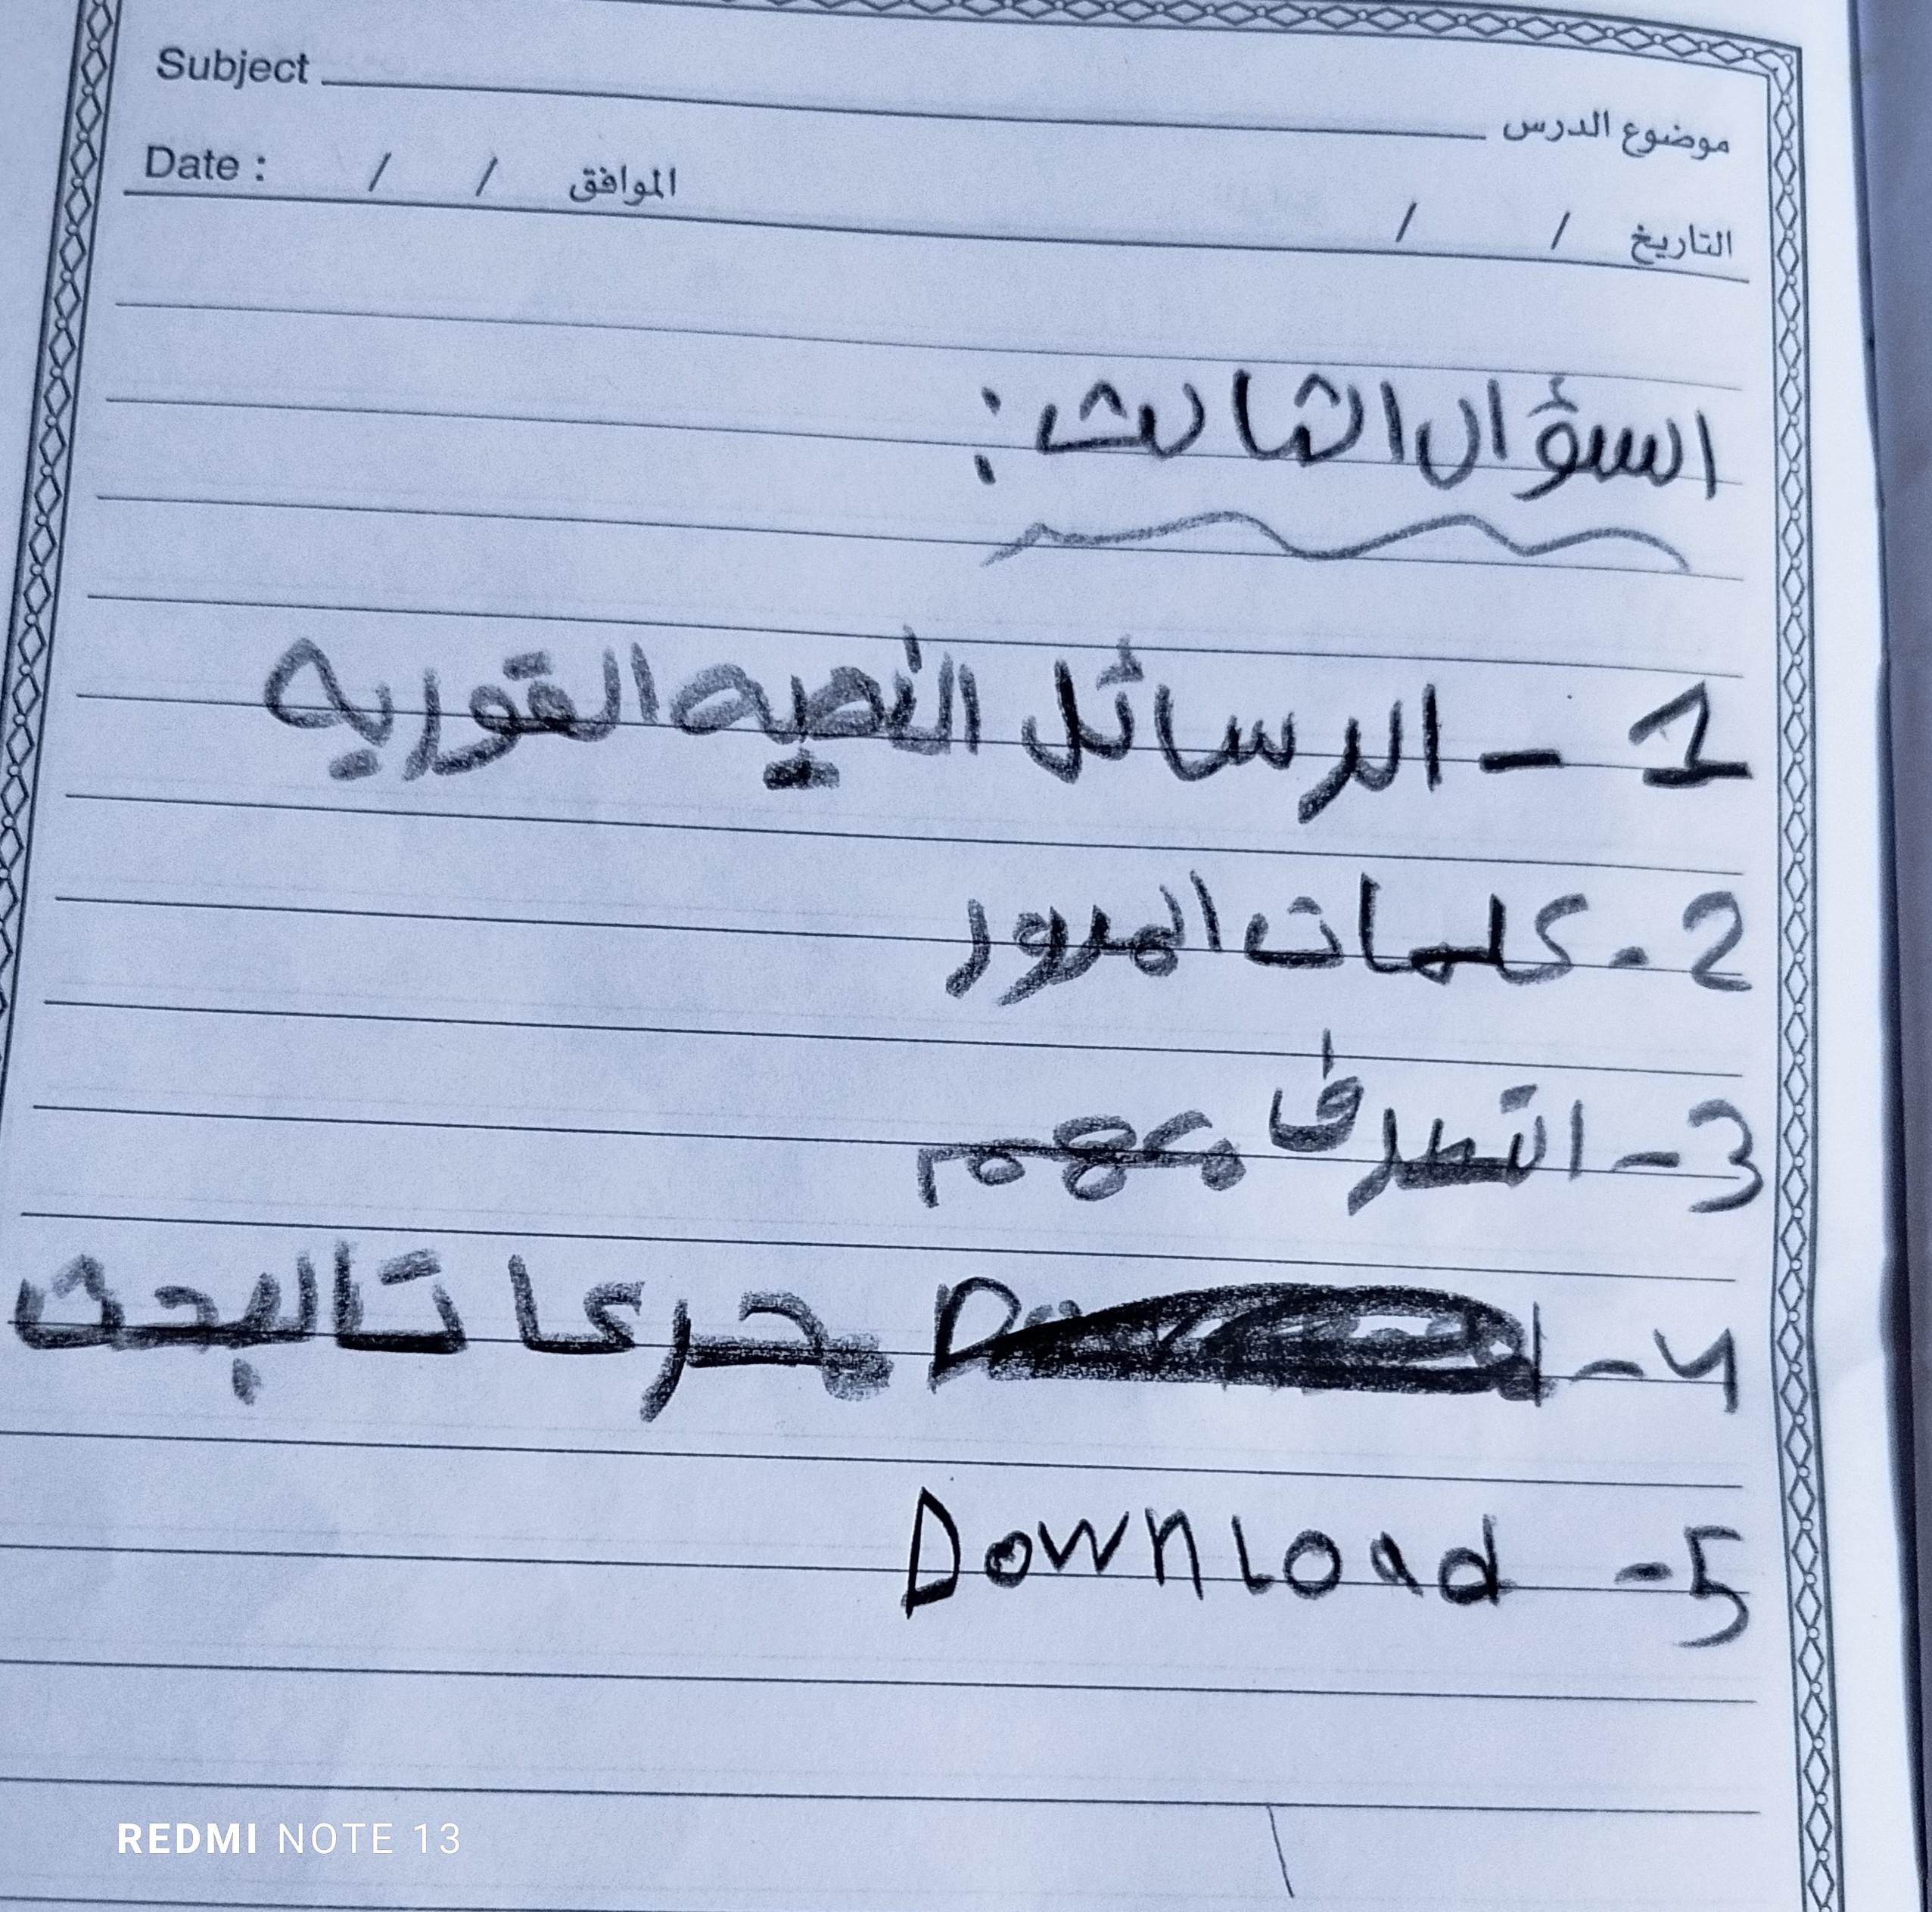 Subject موضوع الدرس
Date : / / الموافق / / التاريخ
السؤال الثالث :
1 - الرسائل النصيه الفوريه
2 - كلمات المرور
3 - التطرف
4 - محركات البحث
5 - Download
REDMI NOTE 13